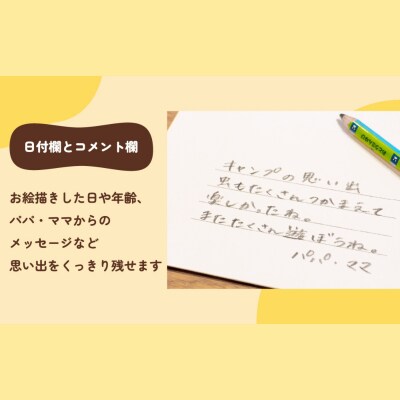 日付欄とコメント欄
お絵描きした日や年齢、
パパ・ママからの
メッセージなど
思い出をくっきり残せます
キャンプの思い出
虫もたくさんつかまえて
楽しかったね。
またたくさん遊ぼうね。
パパ・ママ